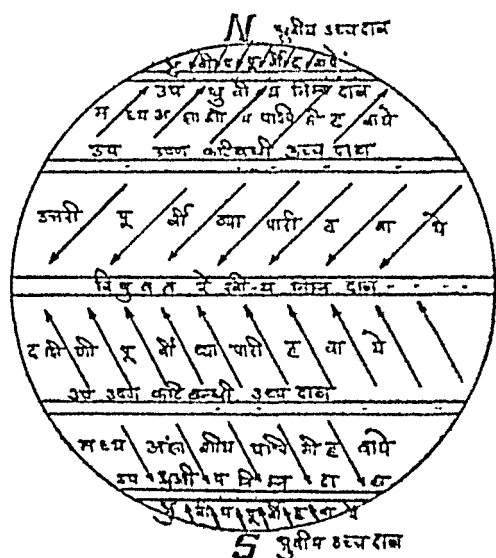 N ध्रुवीय उच्च दाब
ध्रुवीय पूर्वी हवायें
उप ध्रुवीय निम्न दाब
मध्य अक्षांशीय पश्चिमी हवायें
उप उष्ण कटिबन्धी उच्च दाब
उत्तरी पूर्वी व्यापारी हवायें
विषुवत रेखीय निम्न दाब
दक्षिणी पूर्वी व्यापारी हवायें
उप उष्ण कटिबन्धी उच्च दाब
मध्य अक्षांशीय पश्चिमी हवायें
उप ध्रुवीय निम्न दाब
ध्रुवीय पूर्वी हवायें
S ध्रुवीय उच्च दाब